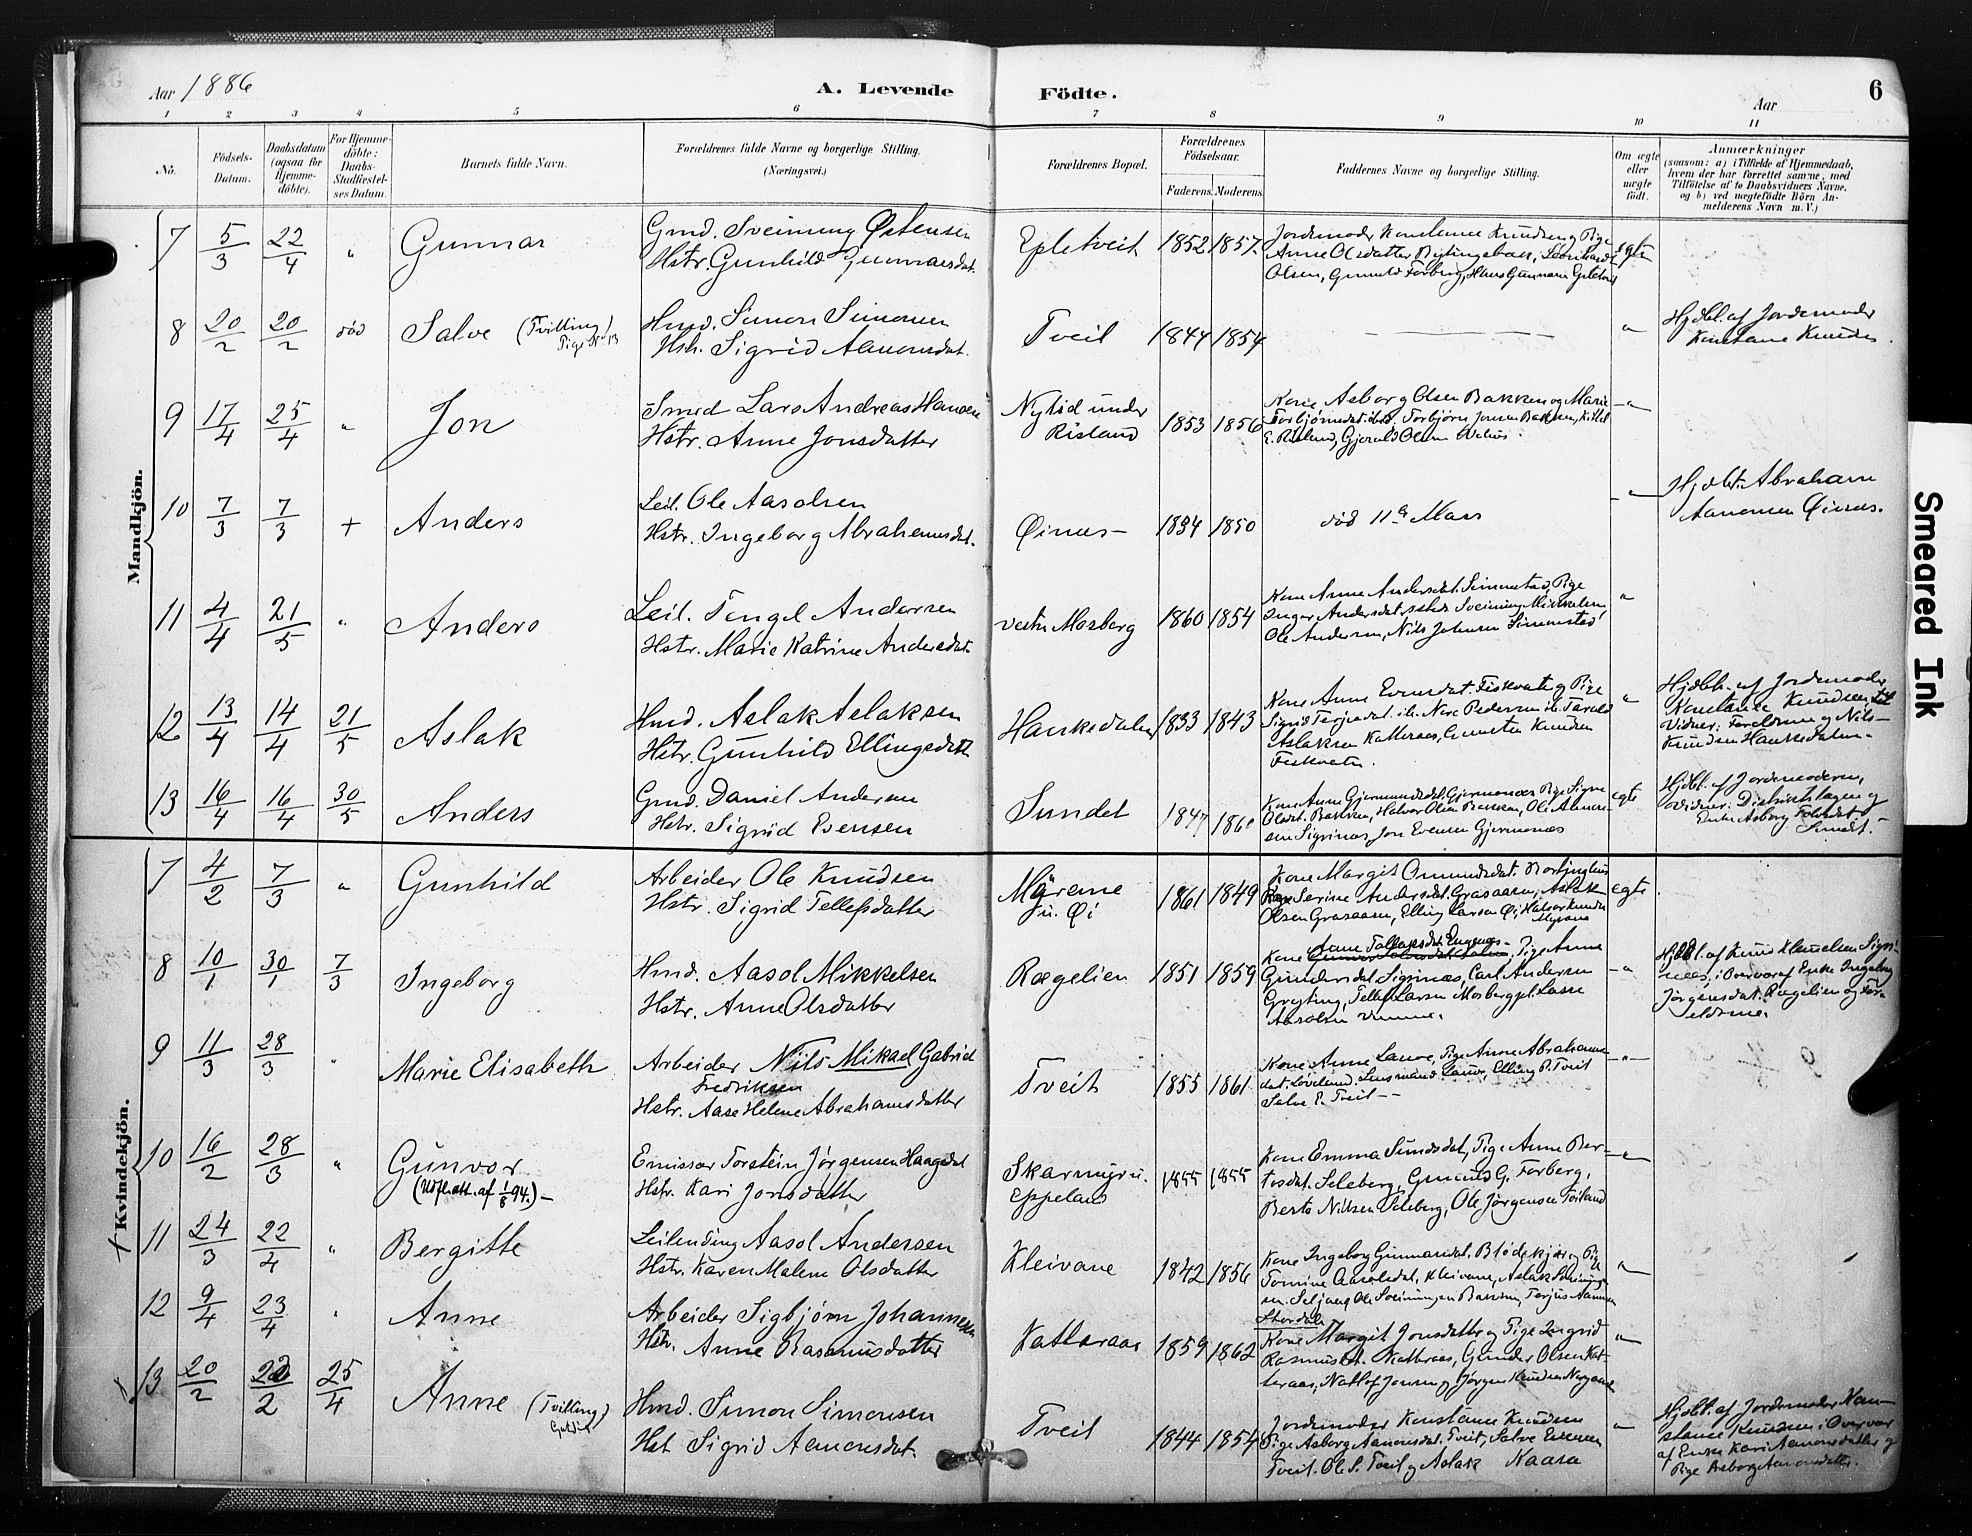 Aar 1886
A. Levende Födte.
Aar
6
1 2 3 4 5 6 7 8 9 10 11
No.
Födsels-Datum.
Daabsdatum (ogsaa for Hjemme-döbte).
For Hjemme-döbte: Daabs-Stadfæstel-ses Datum.
Barnets fulde Navn.
Forældrenes fulde Navne og borgerlige Stilling.
(Næringsvei.)
Forældrenes Bopæl.
Forældrenes Födselsaar.
Faderens. Moderens.
Faddernes Navne og borgerlige Stilling.
Om ægte eller uægte födt.
Anmærkninger
(saasom: a) i Tilfælde af Hjemmedaab,
hvem der har forrettet samme, med
Tilföielse af to Daabsvidners Navne,
og b) ved uægtefödte Börn An-
melderens Navn m. V.)
Mandkjön.
7 5/3 22/4 " Gunnar
Gmd. Sveinung Østensen
Hstr. Gunhild Gunnarsdat.
Epletveit 1852 1857
Jordemoder Konstance Knudsen og Pige
Anne Olsdatter
Olsen, Gunuld Forberg, Hans Gunnarsen Epletveit
egte
8 20/2 20/2 død Salve (Tvilling)
Pige No 13
Hmd. Simon Simonsen
Hstr. Sigrid Aamonsdat.
Tveit 1844 1854
"
Hjdbt. af Jordemoder
Konstance Knudsen.
9 17/4 25/4 " Jon
Smed Lars Andreas Hansen
Hstr. Anne Jonsdatter
Nylid under
Risland
1853 1856
Kone Asborg Olsen Bakken og Marie
Torbjørnsdat. ibid. Torbjørn Jonsen Bakken, Kittel
E. Risland, Gjeruld Olsen
"
10 7/3 7/3 + Anders
Leil. Ole Aasolsen
Hstr. Ingeborg Abrahamsdat.
Øinæs 1834 1850
død 11te Mars
"
Hjdbt. Abraham
Aanonsen Øinæs.
11 4/4 21/5 " Anders
Leil. Tengel Andersen
Hstr. Marie Katrine Andersdat.
vestre Mosberg 1860 1854
Kone Anne Andersdat. Simonstad, Pige
Inger Andersdat. Sveinung Mikkelsen,
Ole Andersen, Nils Johnsen Simonstad
"
12 13/4 14/4 21/5 Aslak
Hmd. Aslak Aslaksen
Hstr. Gunhild Ellingsdat.
Hanksdalen 1833 1843
Kone Anne Evensdat. Fiskvatn og Pige
Sigrid Terjesdat. ib. Nere Pedersen ib. Tarald
Aslaksen Katteraas, Gunsten Knudsen
Fiskvatn.
"
Hjdbt. af Jordemoder
Konstance Knudsen,
Vidner: Forældrene og Nils
Knudsen Hanksdalen.
13 16/4 16/4 30/5 Anders
Gmd. Daniel Andersen
Hstr. Sigrid Evensen
Sundet 1847 1860
Kone Anne Gjermundsdat. Gjermonæs Pige Signe
Olsdt. Bakken, Halvor Olsen Bakken, Ole
Siginæs, Jon Evensen Gjermonæs
egte
Hjdbt. af Jordemoderen,
Vidner: Distriktslægen og
Enke Asborg
Sundt.
Kvindekjön.
7 4/2 7/3 " Gunhild
Arbeider Ole Knudsen
Hstr. Sigrid Tellefsdatter
Myrene
u. Øi
1861 1849
Kone Margit Omundsdat.
Serine Andersdat. Grasaasen, Aslak
Olsen Graasaasen, Elling Larsen Øi, Halvor Knudsen
Myrene
egte
8 10/1 30/1 7/3 Ingeborg
Hmd. Aasol Mikkelsen
Hstr. Anne Olsdatter
Rægelien 1851 1859
Anne Tallaksdat. Engenes
Kone Pige Anne
Gundersdat. Siginæs, Carl Andersen
Gryting, Tellef Larsen Mosberg pl. Lasse
Aasolsen
"
Hjdbt. af Knud Knudsen Sigi-
næs, i Overvær af Enke Ingeborg
Jørgensdat. Rægelien og For-
ældrene.
9 11/3 28/3 " Marie Elisabeth
Arbeider Nils Mikael Gabriel
Fredriksen
Hstr. Aase Helene Abrahamsdatter
Tveit 1855 1861
Kone Anne Lauve, Pige Anne Abrahams-
dat. Løveland. Lensmand Lauve, Elling P. Tveit
Salve P. Tveit
"
10 16/2 28/3 " Gunvor
(Udfl.att. af 1/8 94.)
Emissær Torstein Jørgensen Haagedal
Hstr. Kari Jonsdatter
Skarmyr u.
Eppeland
1855 1855
Kone Emma Sundsdat, Pige Anne Ber-
tosdat. Seleberg, Gunuld G. Forberg,
Berto Nilsen Seleberg, Ole Jørgensen
"
11 24/3 22/4 " Bergitte
Leilending Aasol Andersen
Hstr. Karen Malene Olsdatter
Kleivane 1842 1856
Kone Ingeborg Gunnarsdat. Blödekjær og Pige
Tomine Aasolsdat. Kleivane, Aslak
Ole Sveinungsen Bakken, Terjus Aamonsen
Stordale
"
12 9/4 23/4 " Anne
Arbeider Sigbjørn Johannesen
Hstr. Anne Rasmusdatter
Katteraas 1859 1862
Kone Margit Jonsdatter og Pige Ingrid
Rasmusdt. Katteraas, Gunder Olsen Kat-
teraas, Jonsen og Jørgen Knudsen
"
13 20/2 20/2 25/4 Anne (Tvilling)
Hmd. Simon Simonsen
Hst. Sigrid Aamonsdat.
Tveit 1844 1854
Jordemoder Konstanse Knudsen
Pige Asborg Aamonsdat. Tveit, Salve Evensen
Tveit. Ole S. Tveit og Aslak Naasa
"
Hjdbt. af Jordemoder Kon-
stance Knudsen i Overvær
af Enke Kari Aamonsdatter og
Pige Asborg Aamonsdatter.
Smeared Ink